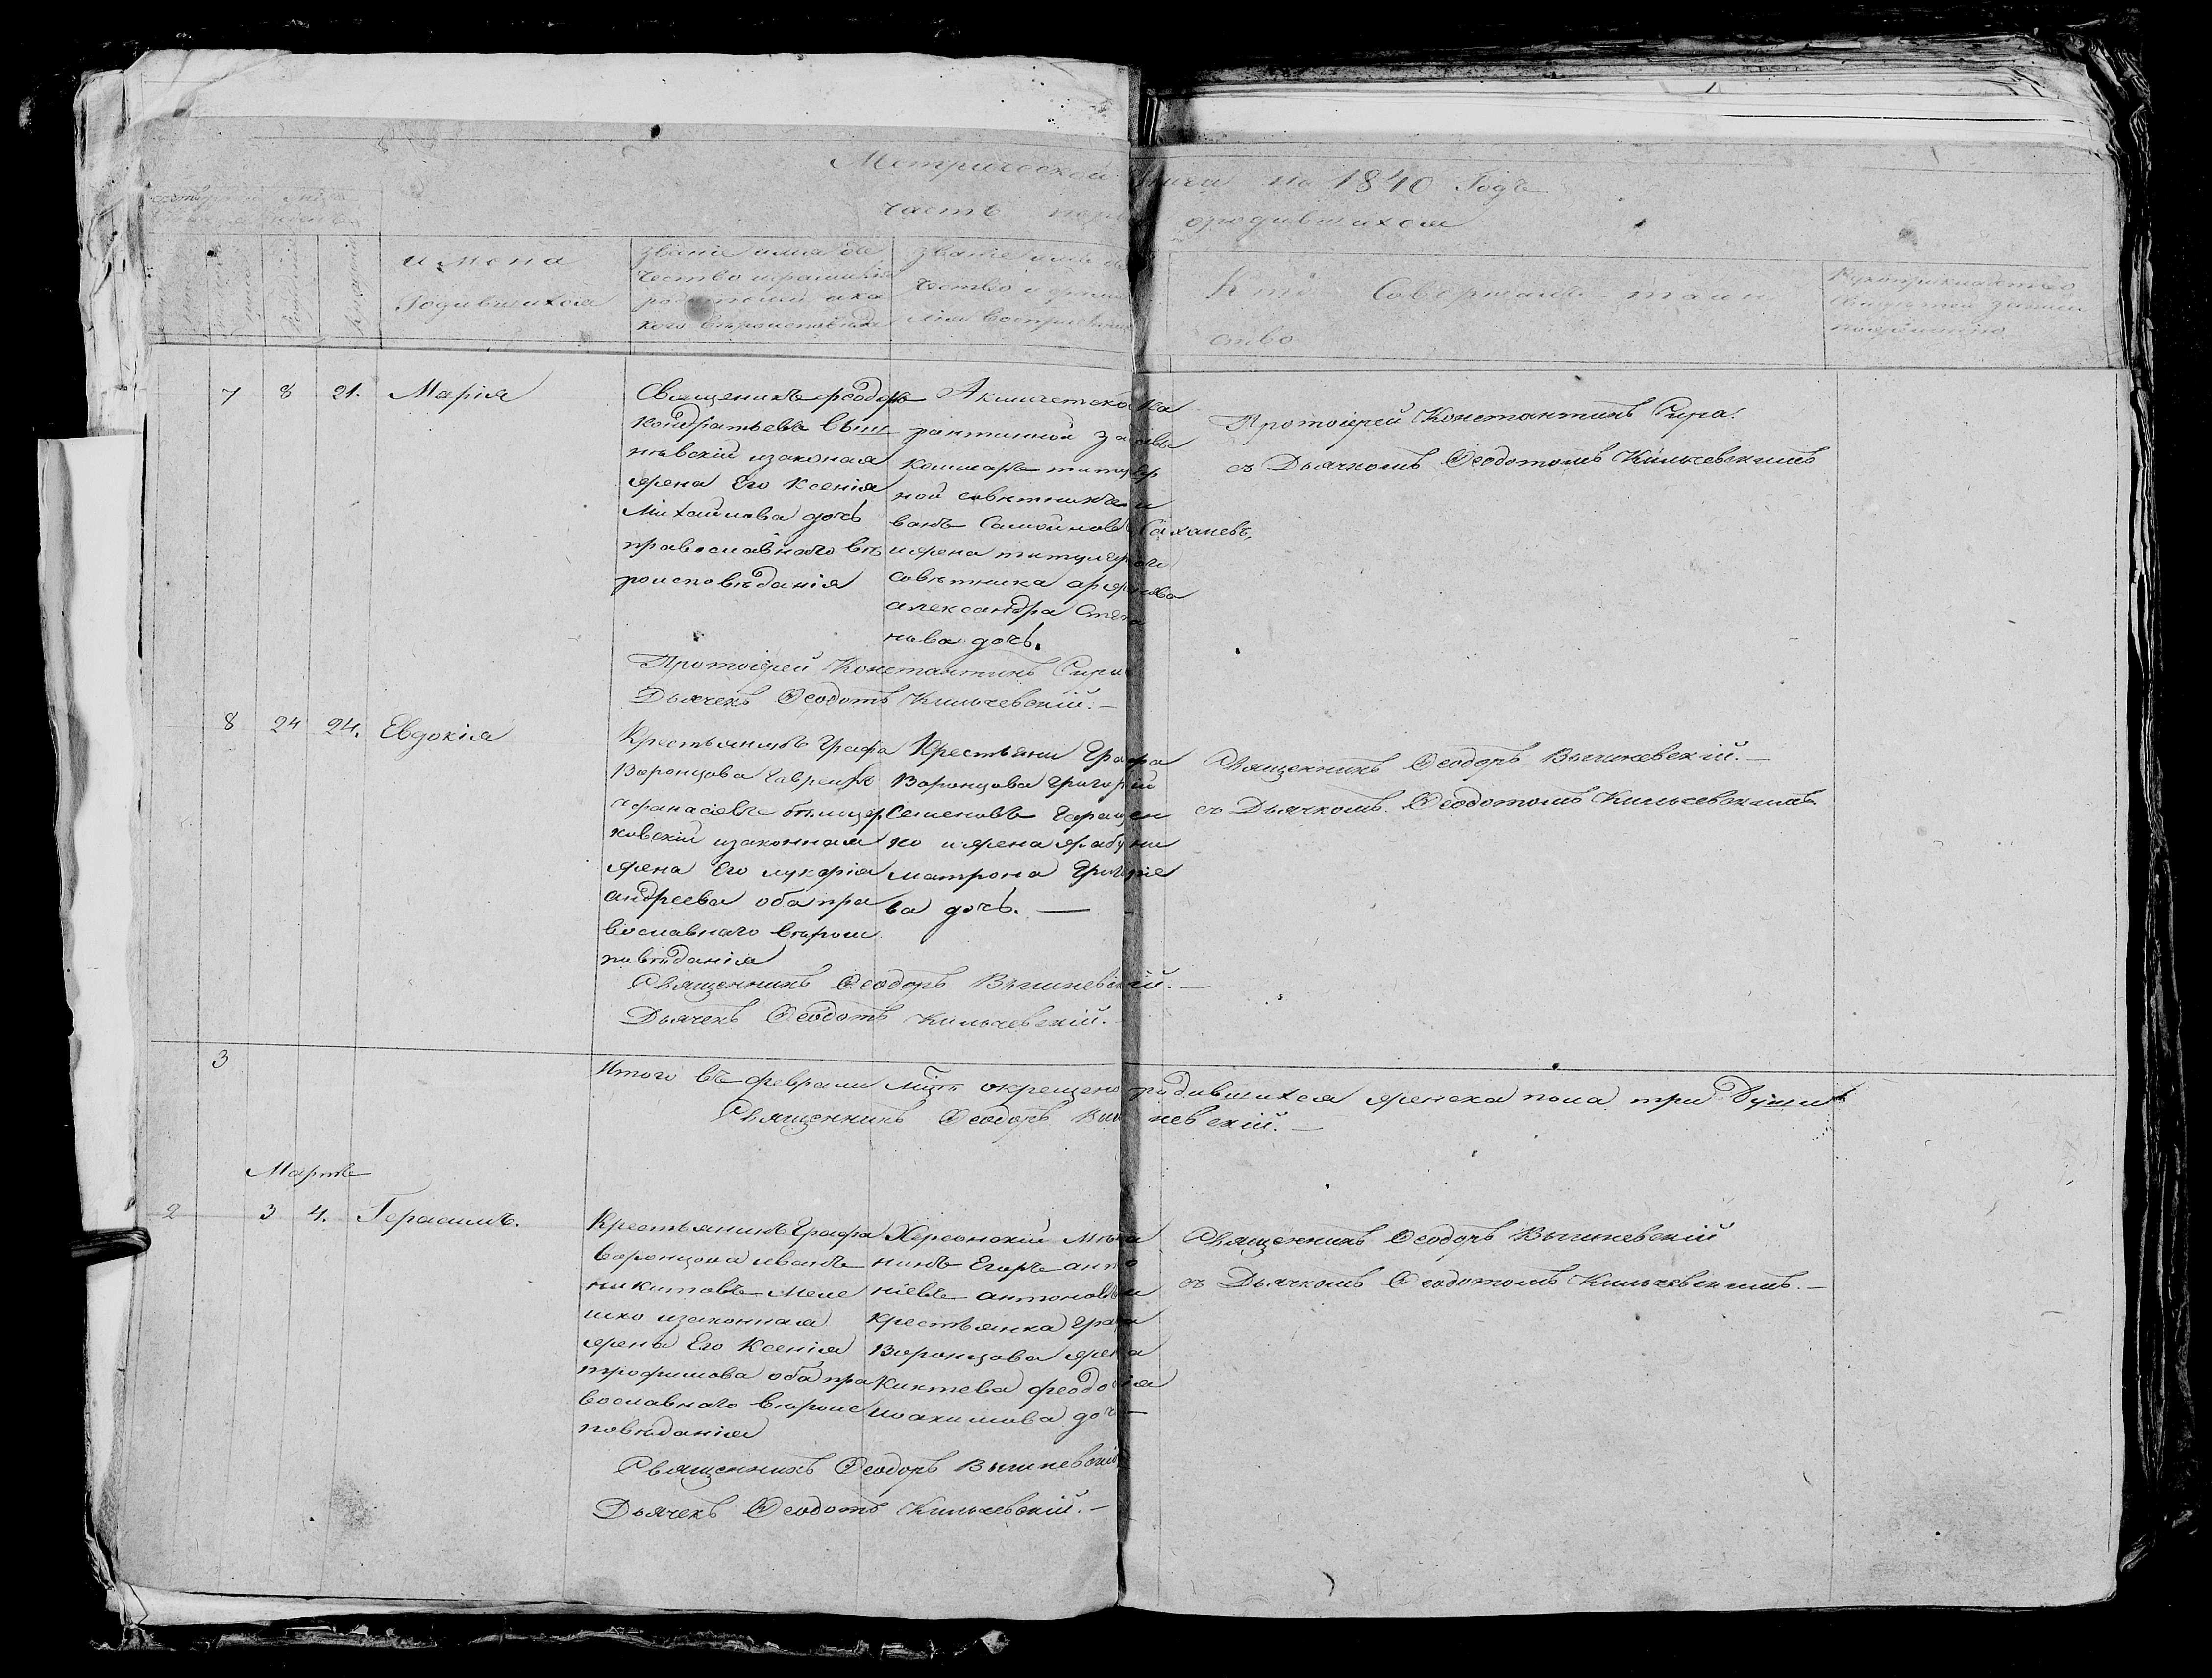 Метрической книги на 1840 Годъ
часть перв. о родившихся
имена
Родившихся
Званіе имя оте
чество и фамилія
родителей и ка
кого вѣроисповѣд
Званіе имя
чество и фами
лія воспріем
Кто Совершалъ таин
ство
Рукоприкладство
свидѣтел записи
по желанію
7 8 21. Марія
Священникъ феодоръ
Кондратьевъ Выш
невскій изаконая
жена Его Ксенія
Михайлова дочь
православнаго вѣ
роисповѣданія
Акмечетской ка
рантинной заставы
комисаръ титуляр
ной совѣтникъ и
ванъ Самойловъ Сахацевъ,
и жена титулярнаго
совѣтника
александра Степа
нова дочь.
Протоіерей Константинъ Сира.
съ Дьячкомъ Ѳеодотомъ Кильчевскимъ
Протоіерей Константинъ Сира
Дьячекъ Ѳеодотъ Кильчевскій.—
8 24 24. Евдокія
Крестьянинъ Графа
Воронцова
Афанасіевъ
ковскій изаконная
жена Его лукерія
андреева оба пра
вославнаго вѣроис
повѣданія
Крестьяни Графа
Воронцова Григорій
Семеновъ Геращен
ко и жена
матрона Григоріе
ва дочь. —
Священникъ Ѳеодоръ Вышневскій.—
съ Дьячкомъ Ѳеодотомъ Кильчевскимъ.
Священникъ Ѳеодоръ Вышневскій.—
Дьячекъ Ѳеодотъ Кильчевскій.
3
Итого въ феврали мцѣ окрещено родившихся женска пола три Души
Священникъ Ѳеодоръ Вышневскій.—
Мартъ
2 3 4. Герасимъ.
Крестьянинъ Графа
Воронцова иванъ
никитовъ Меле
шко изаконная
жена Его Ксенія
трофимова оба пра
вославнаго вѣроис
повѣданія
Херсонскій Мѣща
нинъ Егоръ анто
ніевъ антоновъ и
крестьянка Графа
Воронцова жена
Киктева феодосія
иоакимова дочь—
Священникъ Ѳеодоръ Вышневскій
съ Дьячкомъ Ѳеодотомъ Кильчевскимъ.—
Священникъ Ѳеодоръ Вышневскій
Дьячекъ Ѳеодотъ Кильчевскій.—